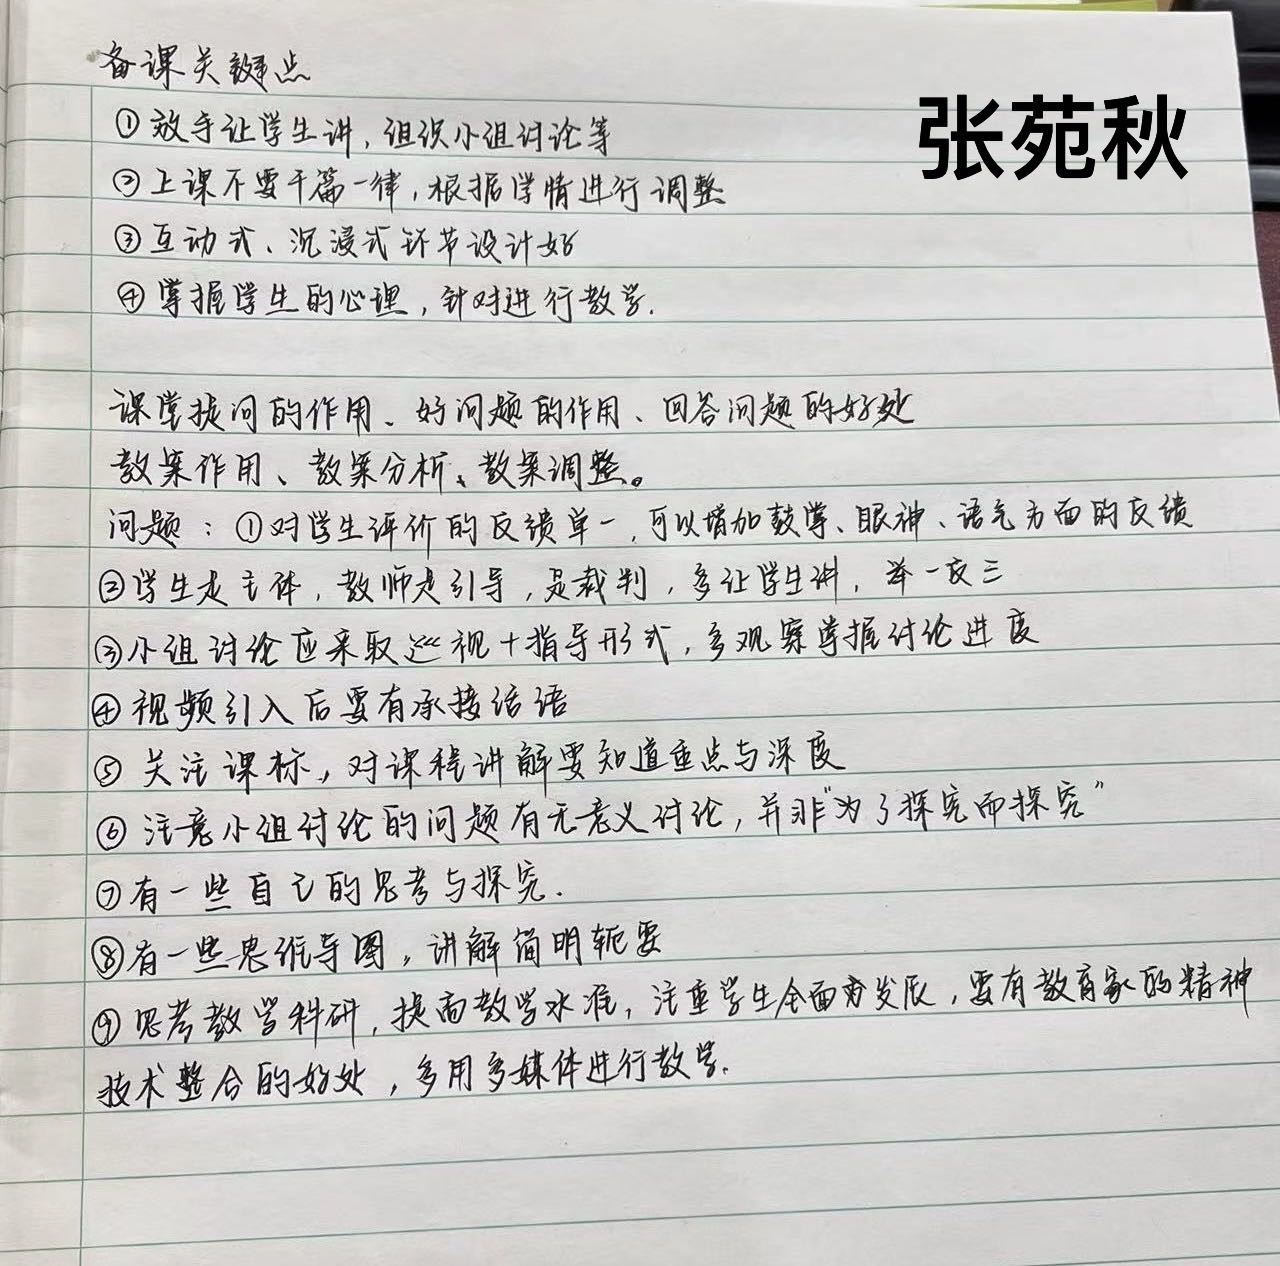 备课关键点
张苑秋
①放手让学生讲，组织小组讨论等
②上课不要千篇一律，根据学情进行调整
③互动式、沉浸式环节设计好
④掌握学生的心理，针对进行教学.
课堂提问的作用、好问题的作用、回答问题的好处
教案作用、教案分析、教案调整。
问题：①对学生评价的反馈单一，可以增加鼓掌、眼神、语气方面的反馈
②学生是主体，教师是引导，是裁判，多让学生讲，举一反三
③小组讨论应采取巡视+指导形式，多观察掌握讨论进度
④视频引入后要有承接话语
⑤关注课标，对课程讲解要知道重点与深度
⑥注意小组讨论的问题有无意义讨论，并非“为了探究而探究”
⑦有一些自己的思考与探究.
⑧有一些思维导图，讲解简明轭要
⑨思考教学科研，提高教学水准，注重学生全面发展，要有教育家的精神
技术整合的好处，多用多媒体进行教学.